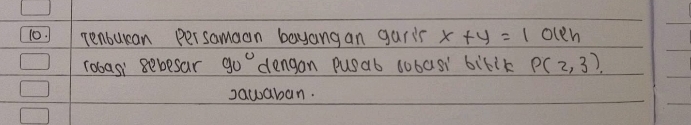 10. Tentukan Persamaan bayangan garis x + y = 1 oleh
rotasi sebesar 90° dengan pusat rotasi titik P(2,3).
Jawaban.